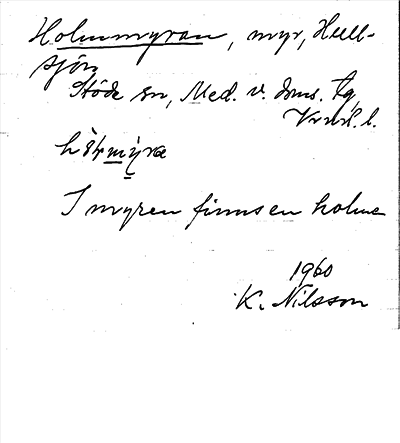 Holmmyran, myr, Hull-
sjön
Stöde sn, Med. v. dms. tg
l.
I myren finns en holme
1960
K. Nilsson